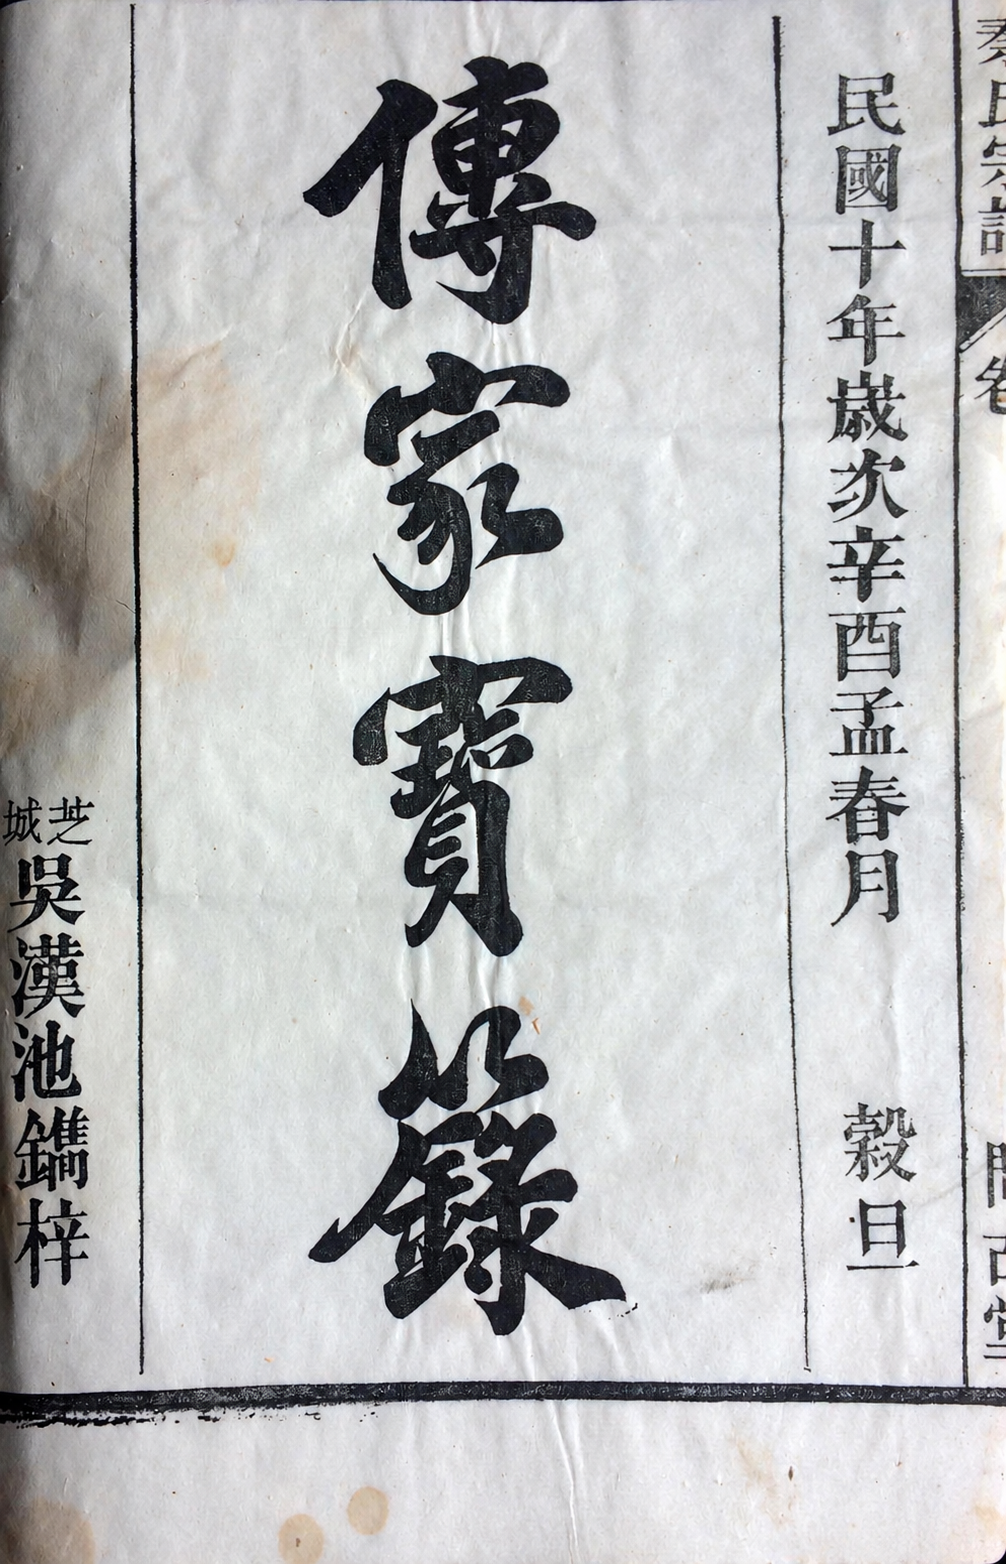 氏宗譜 卷
民國十年歲次辛酉孟春月 穀旦
傳家寶籙
芝城吳漢池鐫梓